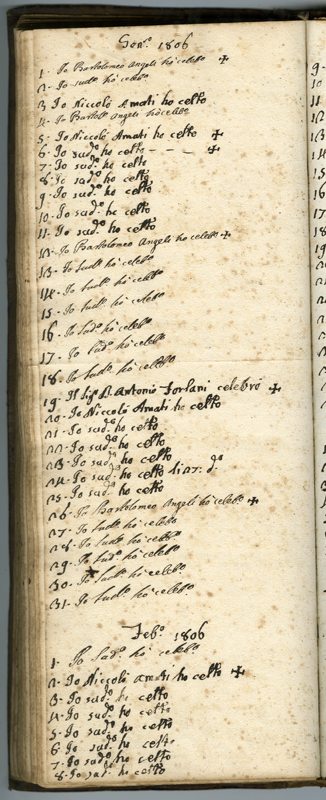 Gen.º 1806
1. Io Bartolomeo Angeli ho' celebº ✠
2. Io sudº ho' celebº
3 Io Niccolò Amati ho celtº
4. Io Bartolº Angeli ho' celebº
5. Io Niccolò Amati ho celtº ✠
6. Io sudº ho celtº - - - ✠
7. Io sadº ho celtº
8. Io sadº ho celtº
9. Io sudº ho celtº
10. Io sudº ho celtº
11. Io sudº ho celtº
12. Io Bartolomeo Angeli ho celebº ✠
13. Io sudº ho' celebº
14. Io sudº ho' celebº
15. Io sudº ho' celebº
16. Io sudº ho' celebº
17. Io sudº ho' celebº
18. Io sudº ho' celebº
19. Il Sigº D. Antonio Forlani celebrò ✠
20. Io Niccolò Amati ho celtº
21. Io sudº ho celtº
22. Io sudº ho celtº
23. Io sudº ho celtº
24. Io sudº ho celtº li 27: dº
25. Io sudº ho celtº
26. Io Bartolomeo Angeli ho' celebº ✠
27. Io sudº ho' celebº
28. Io sudº ho' celebº
29. Io sudº ho' celebº
30. Io sudº ho' celebº
31. Io sudº ho' celebº
Febº 1806
1. Io Sudº ho' celebº
2. Io Niccolò amati ho celtº ✠
3. Io sudº ho celtº
4. Io sudº ho celtº
5. Io sudº ho celtº
6. Io sudº ho celtº
7. Io sadº ho celtº
8. Io sadº ho celtº
9
10
11
12
13
14
15
16
17
18
19